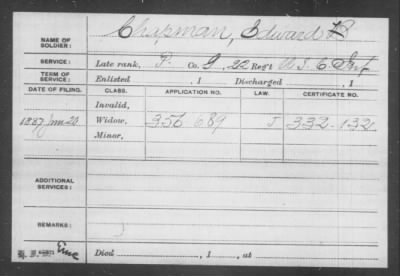 NAME OF SOLDIER: Chapman, Edward R
SERVICE: Late rank, P. Co. G, 22 Reg't U.S.C. Inf
TERM OF SERVICE: Enlisted , 1 Discharged , 1
DATE OF FILING. CLASS. APPLICATION NO. LAW. CERTIFICATE NO.
Invalid,
1887 Jan 20 Widow, 356 689 J 332 132
Minor,
ADDITIONAL SERVICES:
REMARKS:
Died , 1 , at